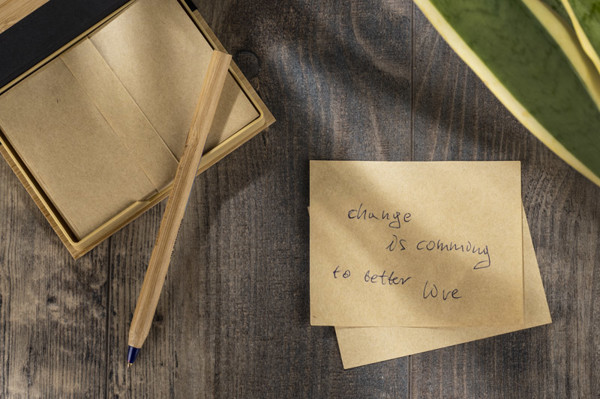 change
is comming
to better
love